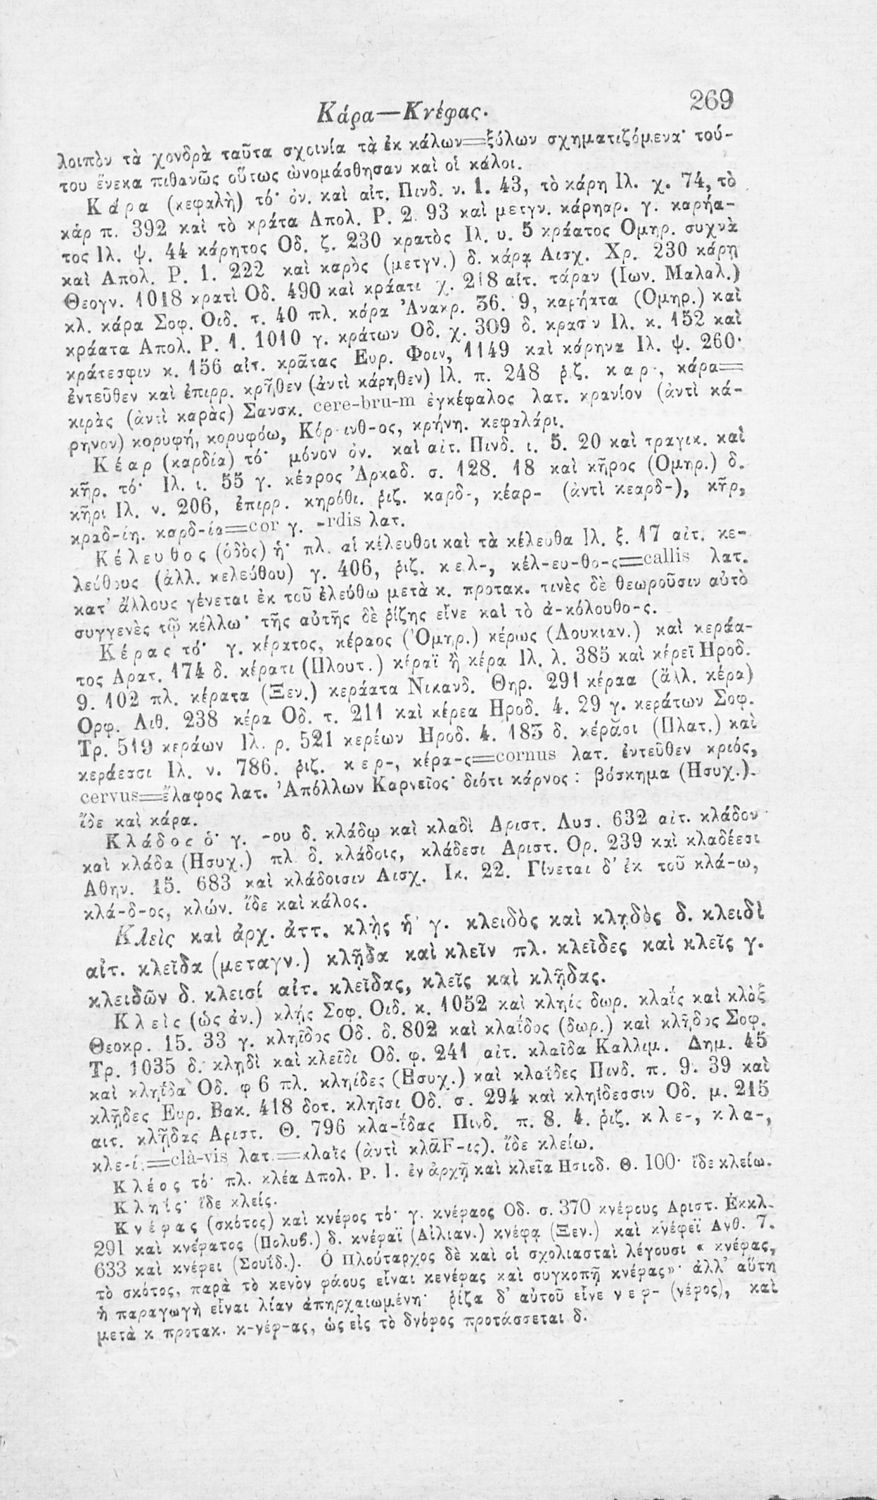 Κάρα—Κνέφας.
269
λοιπὸν τὰ χονδρὰ ταῦτα σχοινία τὰ ἐκ κάλων=ξύλων σχηματιζόμενα· τού-
του ἕνεκα πιθανῶς οὕτως ὠνομάσθησαν καὶ οἱ κάλοι.
Κάρα (κεφαλὴ) τό· ὀν. καὶ αἰτ. Πινδ. ν. 1. 43, τὸ κάρη Ἰλ. χ. 74, τὸ
κὰρ π. 392 καὶ τὸ κρᾶτα Απολ. Ρ. 2. 93 καὶ μετγν. κάρηαρ. γ. καρήα-
τος Ἰλ. ψ. 44 κάρητος Οδ. ζ. 230 κρατὸς Ἰλ. υ. 5 κράατος Ομηρ. συχνὰ
καὶ Απολ. Ρ. 1. 222 καὶ καρὸς (μετγν.) δ. κάρᾳ Αισχ. Χρ. 230 κάρῃ
Θεογν. 1018 κρατὶ Οδ. 490 καὶ κράατι χ. 218 αἰτ. τάραν (Ιων. Μαλαλ.)
κλ. κάρα Σοφ. Οιδ. τ. 40 πλ. κάρα Ἀνακρ. 36. 9, καρήατα (Ομηρ.) καὶ
κράατα Απολ. Ρ. 1. 1010 γ. κράτων Οδ. χ. 309 δ. κρασὶν Ἰλ. κ. 152 καὶ
κράτεσφιν κ. 156 αἰτ. κρᾶτας Ευρ. Φοιν. 1149 καὶ κάρηνα Ἰλ. ψ. 260·
ἐντεῦθεν καὶ ἐπιρρ. κρῆθεν (ἀντὶ κάρηθεν) Ἰλ. π. 248 ῥιζ. καρ-, κάρα=
κιρὰς (ἀντὶ καρὰς) Σανσκ. cere-bru-m ἐγκέφαλος λατ. κρανίον (ἀντὶ κά-
ρηνον) κορυφή, κορυφόω, Κόρ-ινθ-ος, κρήνη. κεφαλάρι.
Κέαρ (καρδία) τό· μόνον ὀν. καὶ αἰτ. Πινδ. ι. 5. 20 καὶ τραγικ. καὶ
κῆρ. τό· Ἰλ. ι. 55 γ. κέαρος Ἀρκαδ. σ. 128. 18 καὶ κῆρος (Ομηρ.) δ.
κῆρι Ἰλ. ν. 206, ἐπιρρ. κηρόθι. ῥιζ. καρδ-, κέαρ- (ἀντὶ κεαρδ-), κῆρ,
κραδ-ίη. καρδ-ία=cor γ. -rdis λατ.
Κέλευθος (ὁδὸς) ἡ· πλ. αἱ κέλευθοι καὶ τὰ κέλευθα Ἰλ. ξ. 17 αἰτ. κε-
λεύθους (ἀλλ. κελεύθου) γ. 406, ῥιζ. κελ-, κέλ-ευ-θο-ς=callis λατ.
κατ' ἄλλους γένεται ἐκ τοῦ ἐλεύθω μετὰ κ. προτακ. τινὲς δὲ θεωροῦσιν αὐτὸ
συγγενὲς τῷ κέλλω· τῆς αὐτῆς δὲ ῥίζης εἶνε καὶ τὸ ἀ-κόλουθο-ς.
Κέρας τό· γ. κέρατος, κέραος (Ὁμηρ.) κέρως (Λουκιαν.) καὶ κεράα-
τος Αρατ. 174 δ. κέρατι (Πλουτ.) κέραϊ ἢ κέρᾳ Ἰλ. λ. 385 καὶ κέρεϊ Ηροδ.
9. 102 πλ. κέρατα (Ξεν.) κεράατα Νικανδ. Θηρ. 291 κέραα (ἄλλ. κέρα)
Ορφ. Λιθ. 238 κέρα Οδ. τ. 211 καὶ κέρεα Ηροδ. 4. 29 γ. κεράτων Σοφ.
Τρ. 519 κεράων Ἰλ. ρ. 521 κερέων Ηροδ. 4. 183 δ. κέρᾶσι (Πλατ.) καὶ
κεράεσσι Ἰλ. ν. 786. ῥιζ. κερ-, κέρα-ς=cornus λατ. ἐντεῦθεν κριός,
cervus=ἔλαφος λατ. Ἀπόλλων Καρνεῖος· διότι κάρνος : βόσκημα (Ησυχ.).
ἴδε καὶ κάρα.
Κλάδος ὁ· γ. -ου δ. κλάδῳ καὶ κλαδὶ Αριστ. Λυσ. 632 αἰτ. κλάδον
καὶ κλάδα (Ησυχ.) πλ δ. κλάδοις, κλάδεσι Αριστ. Ορ. 239 καὶ κλαδέεσι
Αθην. 15. 683 καὶ κλάδοισιν Αισχ. Ικ. 22. Γίνεται δ' ἐκ τοῦ κλά-ω,
κλά-δ-ος, κλών. ἴδε καὶ κάλος.
Κλεὶς καὶ ἀρχ. ἀττ. κλῂς ἡ· γ. κλειδὸς καὶ κλῃδὸς δ. κλειδὶ
αἰτ. κλεῖδα (μεταγν.) κλῇδα καὶ κλεῖν πλ. κλεῖδες καὶ κλεῖς γ.
κλειδῶν δ. κλεισί αἰτ. κλεῖδας, κλεῖς καὶ κλῇδας.
Κλεὶς (ὡς ἀν.) κλῄς Σοφ. Οιδ. κ. 1052 καὶ κληΐς δωρ. κλαΐς καὶ κλὰξ
Θεοκρ. 15. 33 γ. κληῖδος Οδ. δ. 802 καὶ κλαΐδος (δωρ.) καὶ κλῇδος Σοφ.
Τρ. 1035 δ. κλῃδὶ καὶ κλεῖδι Οδ. φ. 241 αἰτ. κλαῖδα Καλλιμ. Δημ. 45
καὶ κληῖδα Οδ. φ 6 πλ. κληίδες (Ησυχ.) καὶ κλαΐδες Πινδ. π. 9. 39 καὶ
κλῇδες Ευρ. Βακ. 418 δοτ. κληῖσι Οδ. σ. 294 καὶ κληΐδεσσιν Οδ. μ. 215
αιτ. κλῇδας Αριστ. Θ. 796 κλα-ΐδας Πινδ. π. 8. 4. ῥιζ. κλε-, κλα-,
κλε-ί.=clà-vis λατ.=κλαῒς (ἀντὶ κλᾶF-ις). ἴδε κλείω.
Κλέος τό· πλ. κλέα Απολ. Ρ. 1. ἐν ἀρχῇ καὶ κλεῖα Ησιοδ. Θ. 100· ἴδε κλείω.
Κληῒς· ἴδε κλείς.
Κνέφας (σκότος) καὶ κνέφος τό· γ. κνέφαος Οδ. σ. 370 κνέφους Αριστ. Εκκλ.
291 καὶ κνέφατος (Πολυβ.) δ. κνέφαϊ (Αἰλιαν.) κνέφᾳ (Ξεν.) καὶ κνέφεϊ Ανθ. 7.
633 καὶ κνέφει (Σουΐδ.). Ὁ Πλούταρχος δὲ καὶ οἱ σχολιασταὶ λέγουσι « κνέφας,
τὸ σκότος, παρὰ τὸ κενὸν φάους εἶναι κενέφας καὶ συγκοπῇ κνέφας»· ἀλλ' αὕτη
ἡ παραγωγὴ εἶναι λίαν ἀπηρχαιωμένη· ῥίζα δ' αὐτοῦ εἶνε νεφ- (νέφος), καὶ
μετὰ κ προτακ. κ-νέφ-ας, ὡς εἰς τὸ δνόφος προτάσσεται δ.